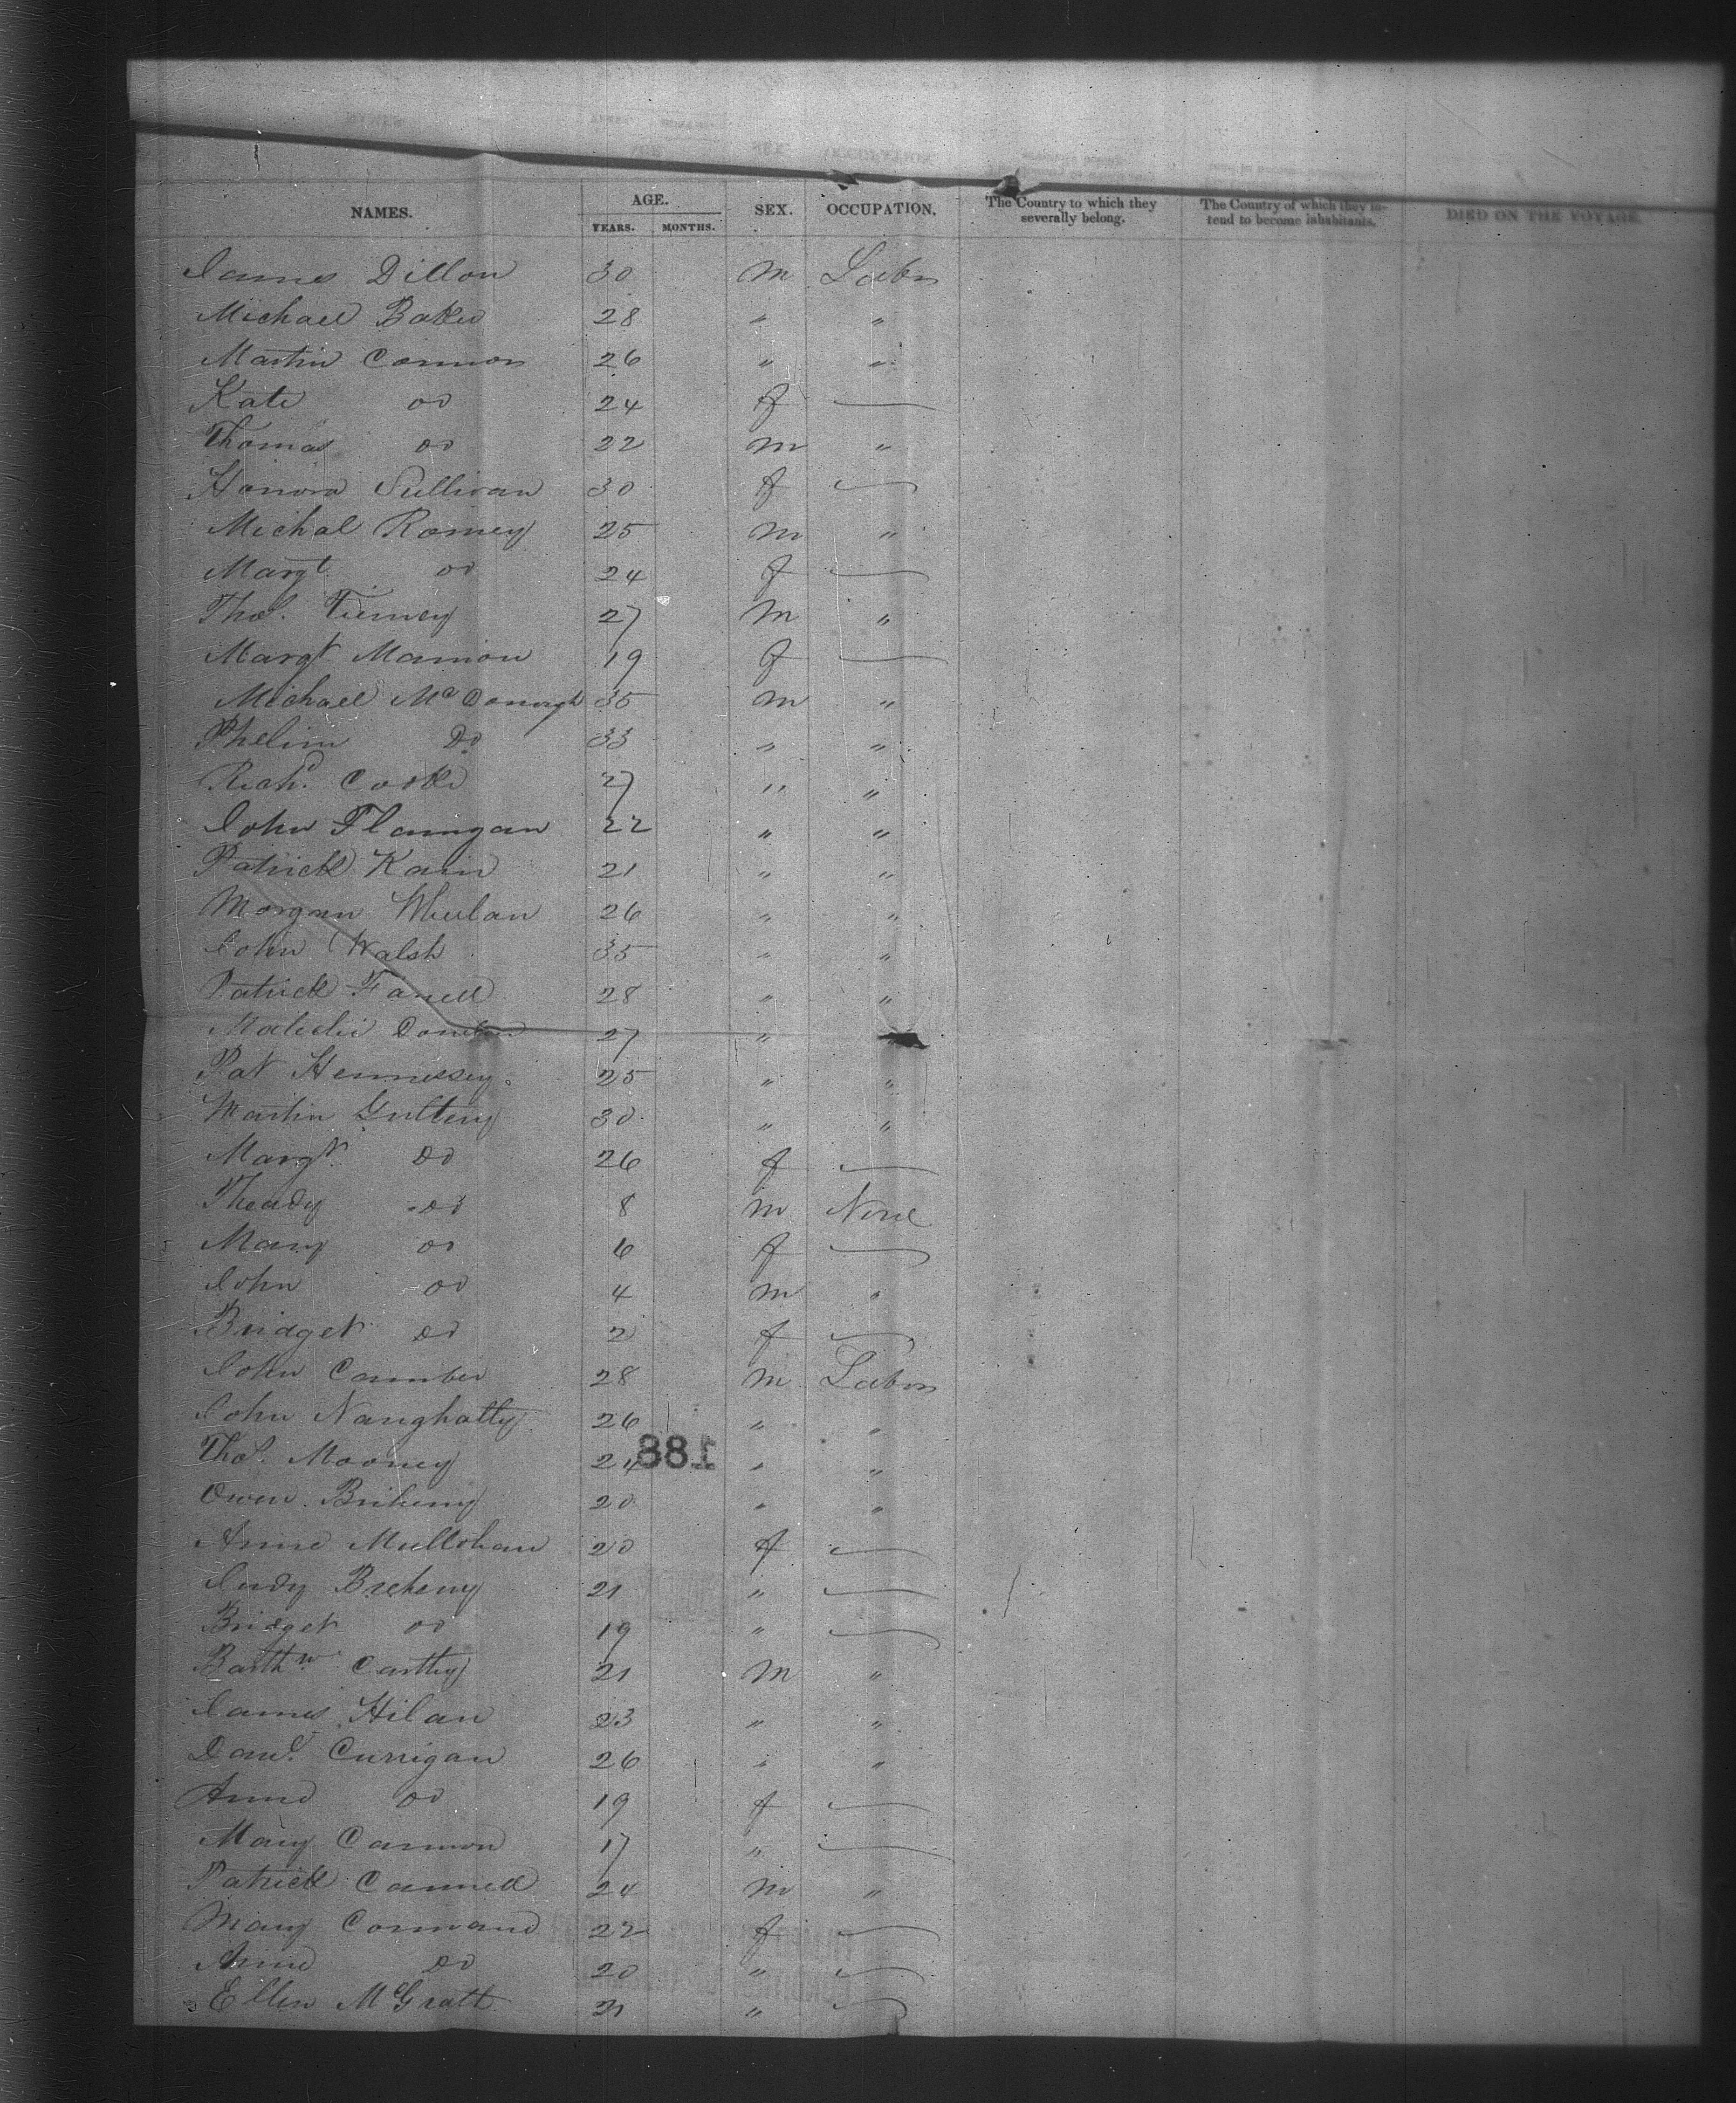 NAMES. AGE. SEX. OCCUPATION. The Country to which they severally belong. The Country of which they intend to become inhabitants. DIED ON THE VOYAGE.
YEARS. MONTHS.
James Dillon 30 m Labr
Michael Baker 28 " "
Martin Connors 26 " "
Kate do 24 f —
Thomas do 22 m "
Honora Sullivan 30 f —
Michal Romey 25 m "
Margt do 24 f —
Thos. Tierney 27 m "
Margt. Mannion 19 f —
Michael McDonogh 35 m "
Phelim Do 33 " "
Richd. Cooke 27 " "
John Flannigan 22 " "
Patrick Kain 21 " "
Morgan Whelan 26 " "
John Walsh 35 " "
Patrick Farrell 28 " "
Malichi 27 " "
Pat Hennessey. 25 " "
Martin 30 " "
Margt. Do 26 f —
Theady do 8 m None
Mary do 6 f —
John do 4 m "
Bridget do 2 f —
John 28 m Labr
John Naughatty 26 " "
Thos. Mooney 24 " "
188
Owen Briheny 20 " "
Anne Mullohan 20 f —
Judy Breheny 21 " —
Bridget do 19 " —
Barthw. Carthy 21 m "
James Hilan 23 " "
Danl. Currigan 26 " "
Anne do 19 f —
Mary Cannon 17 " —
Patrick 24 m "
Mary 22 f —
Anne Do 20 " —
Ellen McGratt 21 " —